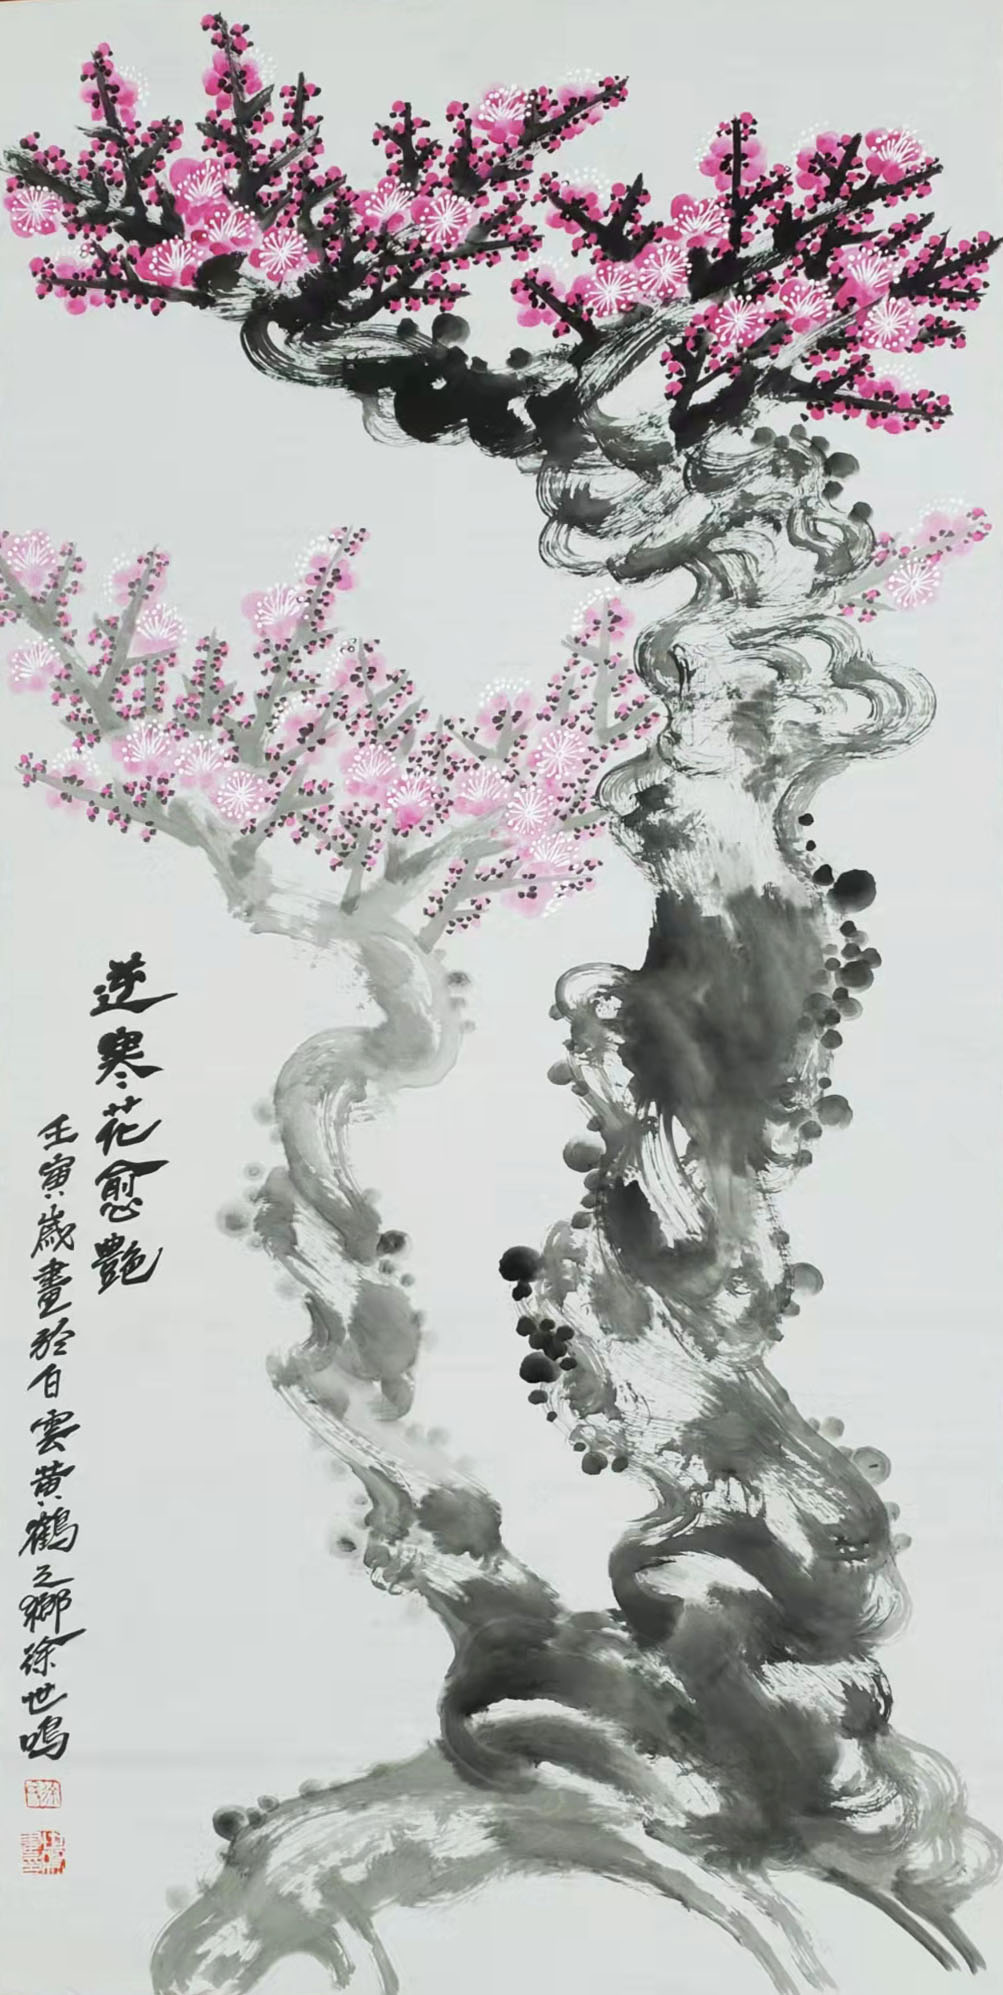 逆寒花愈艷
壬寅歲畫於白雲黄鶴之鄉徐世鳴